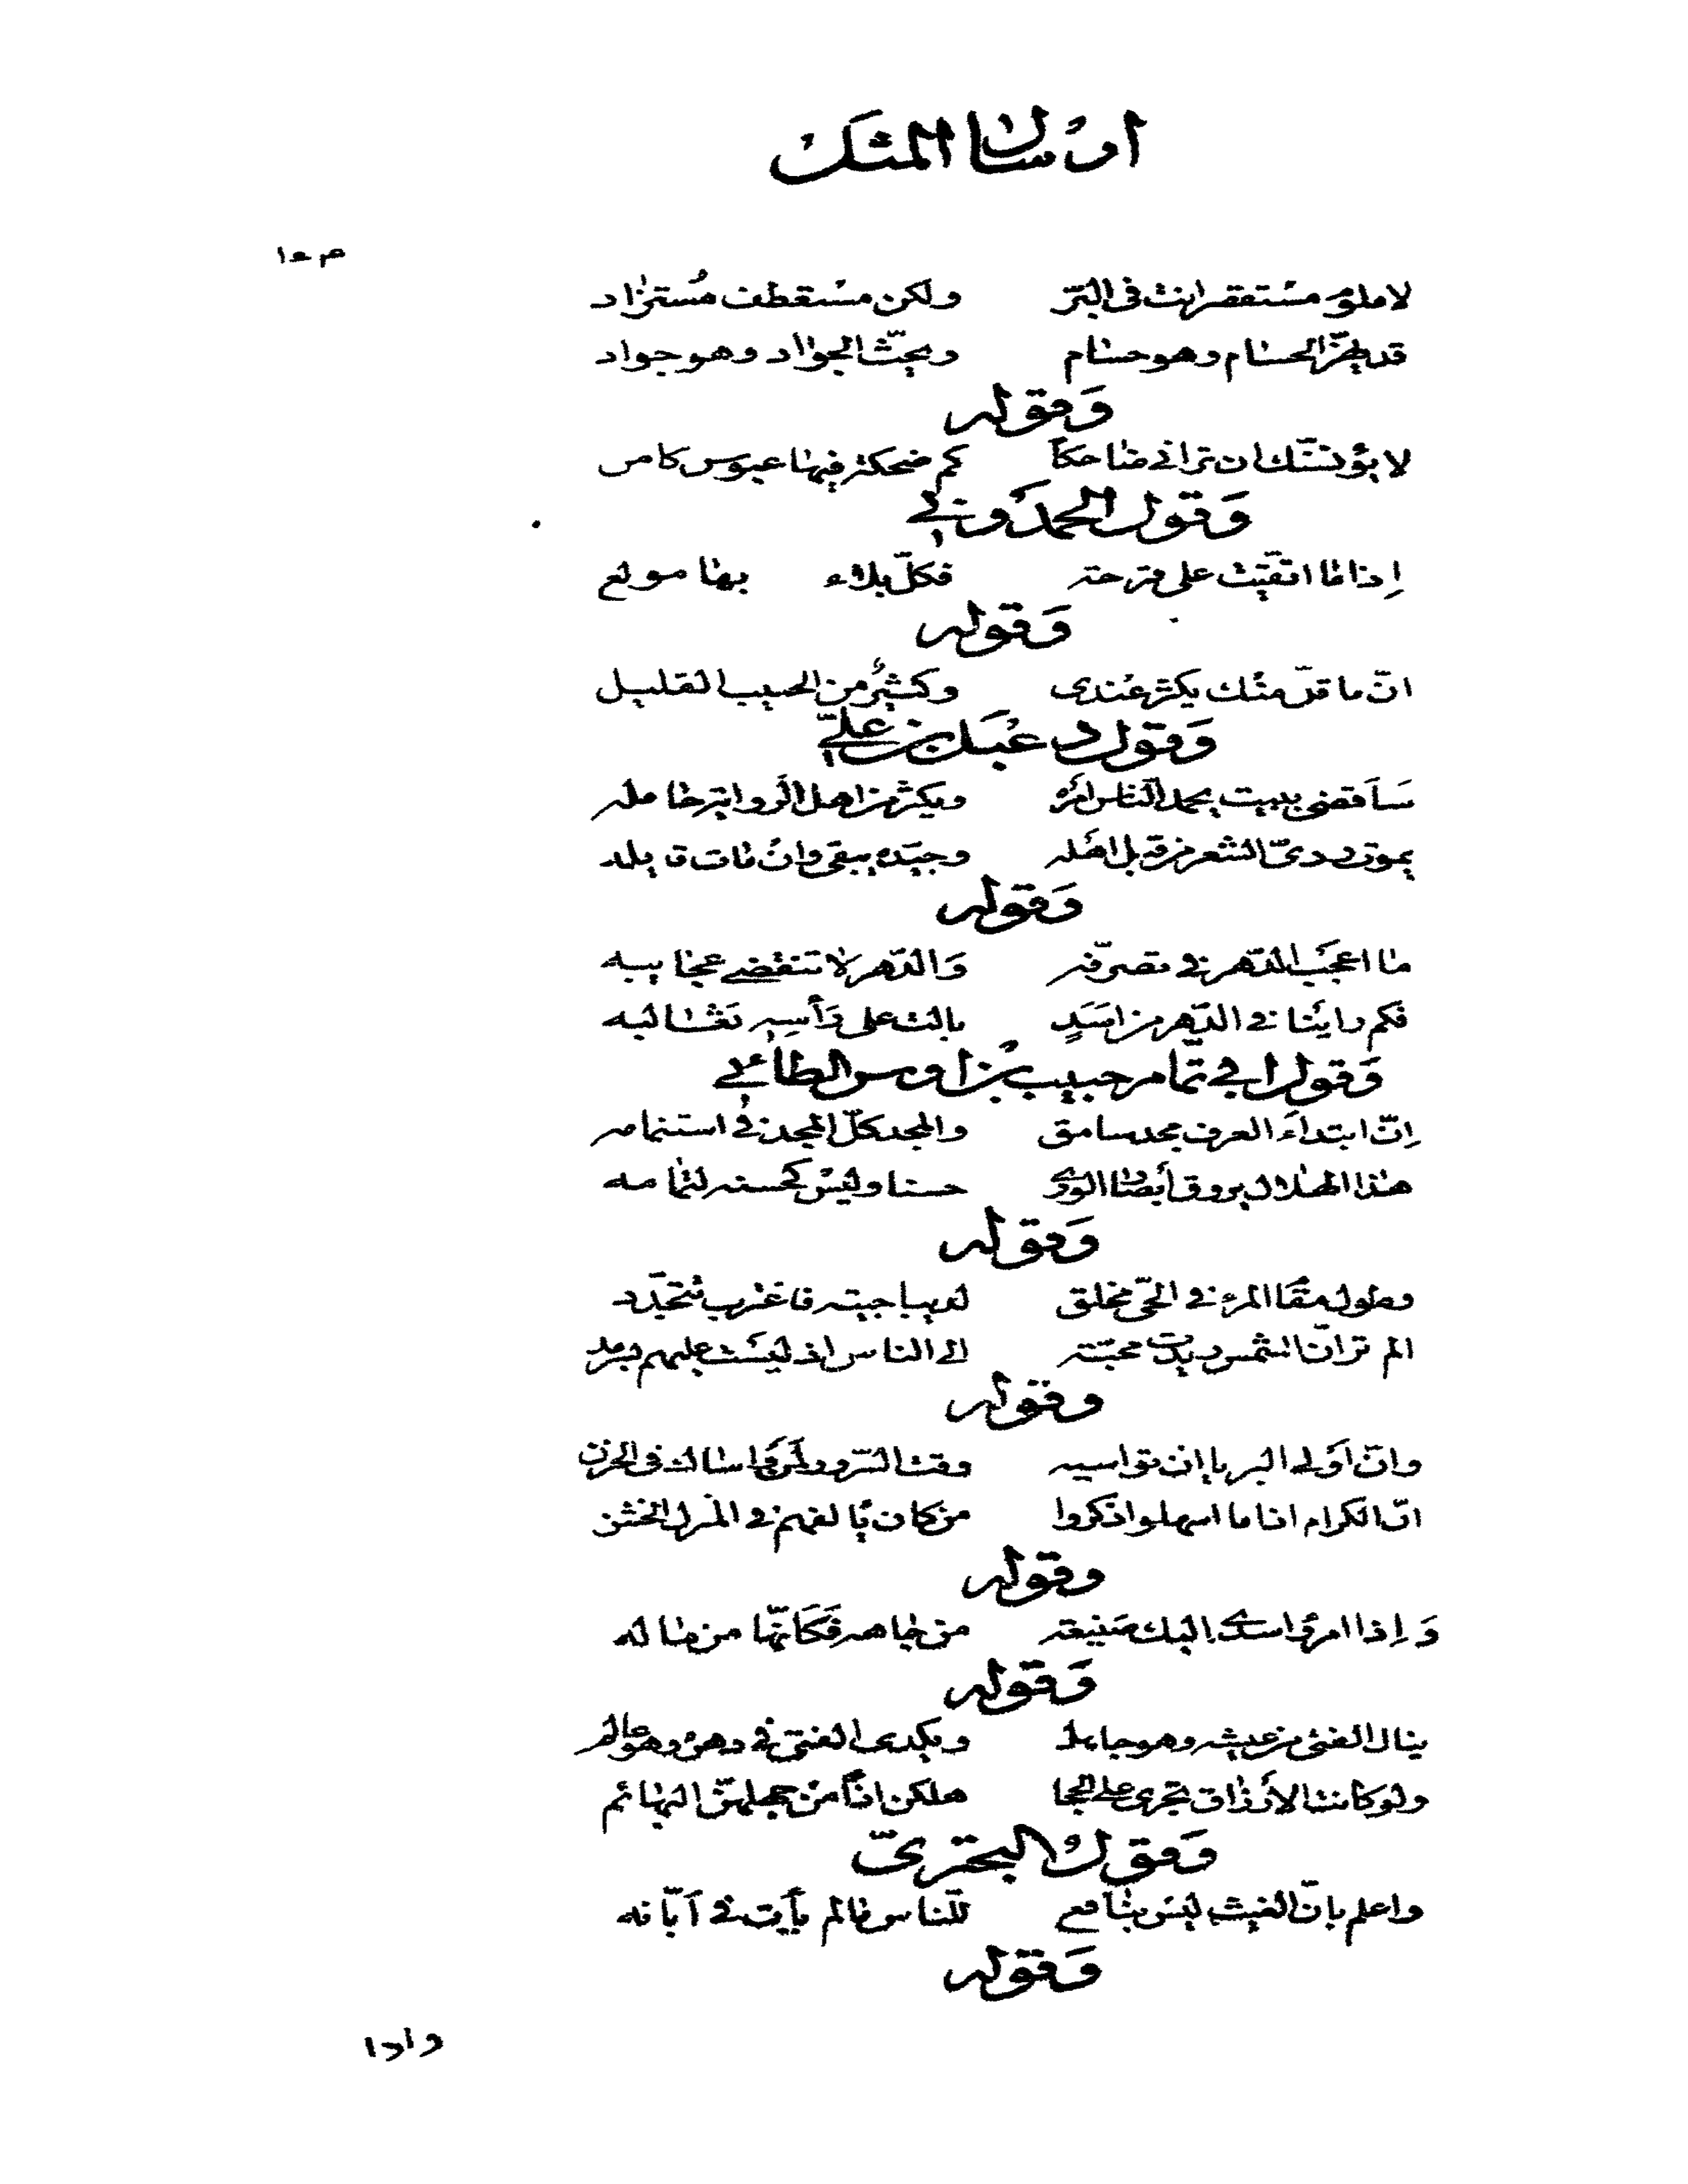 ارسال المثل
م ١٥
لا ملوم مستقصر انت في البر ولكن مستعطف مستزاد
قد يهز الحسام وهو حسام ويحث الجواد وهو جواد
وقوله
لا يؤنسنك ان تراني ضاحكا كم ضحكة فيها عبوس كامن
وقول الحمدوني
إذا ما اتقيت على قرحة فكل بلاء بها مولع
وقوله
ان ما قل منك يكثر عندي وكثير من الحبيب القليل
وقول دعبل بن علي
سأقضي ببيت يحمد الناس امره ويكثر من اهل الرواية حامله
يموت ردي الشعر من قبل اهله وجيده يبقى وان مات قايله
وقوله
ما اعجب الدهر في تصرفه والدهر لا تنقضي عجايبه
فكم رأينا في الدهر من اسد بالت على رأسه ثعالبه
وقول ابي تمام حبيب بن اوس الطائي
إن ابتداء العرف مجد سامق والمجد كل المجد في استتمامه
هذا الهلال يروق أبصار الورى حسنا وليس كحسنه لتمامه
وقوله
وطول مقام المرء في الحي مخلق لديباجيته فاغترب تتجدد
الم تر ان الشمس زيدت محبة الى الناس اذ ليست عليهم بسرمد
وقوله
وان أولى البر ايا ان تواسيه وقت السرور لمن واساك في الحزن
ان الكرام اذا ما اسهلوا ذكروا من كان يألفهم في المنزل الخشن
وقوله
وإذا امرؤ اسدى اليك صنيعة من جاهه فكأنها من ماله
وقوله
ينال الفتى من عيشه وهو جاهل ويكدى الفتى في دهره وهو عالم
ولو كانت الأرزاق تجري على الحجا هلكن اذا من جهلهن البهائم
وقول البحتري
واعلم بان الغيث ليس بنافع للناس ما لم يأت في آبانه
وقوله
واذا